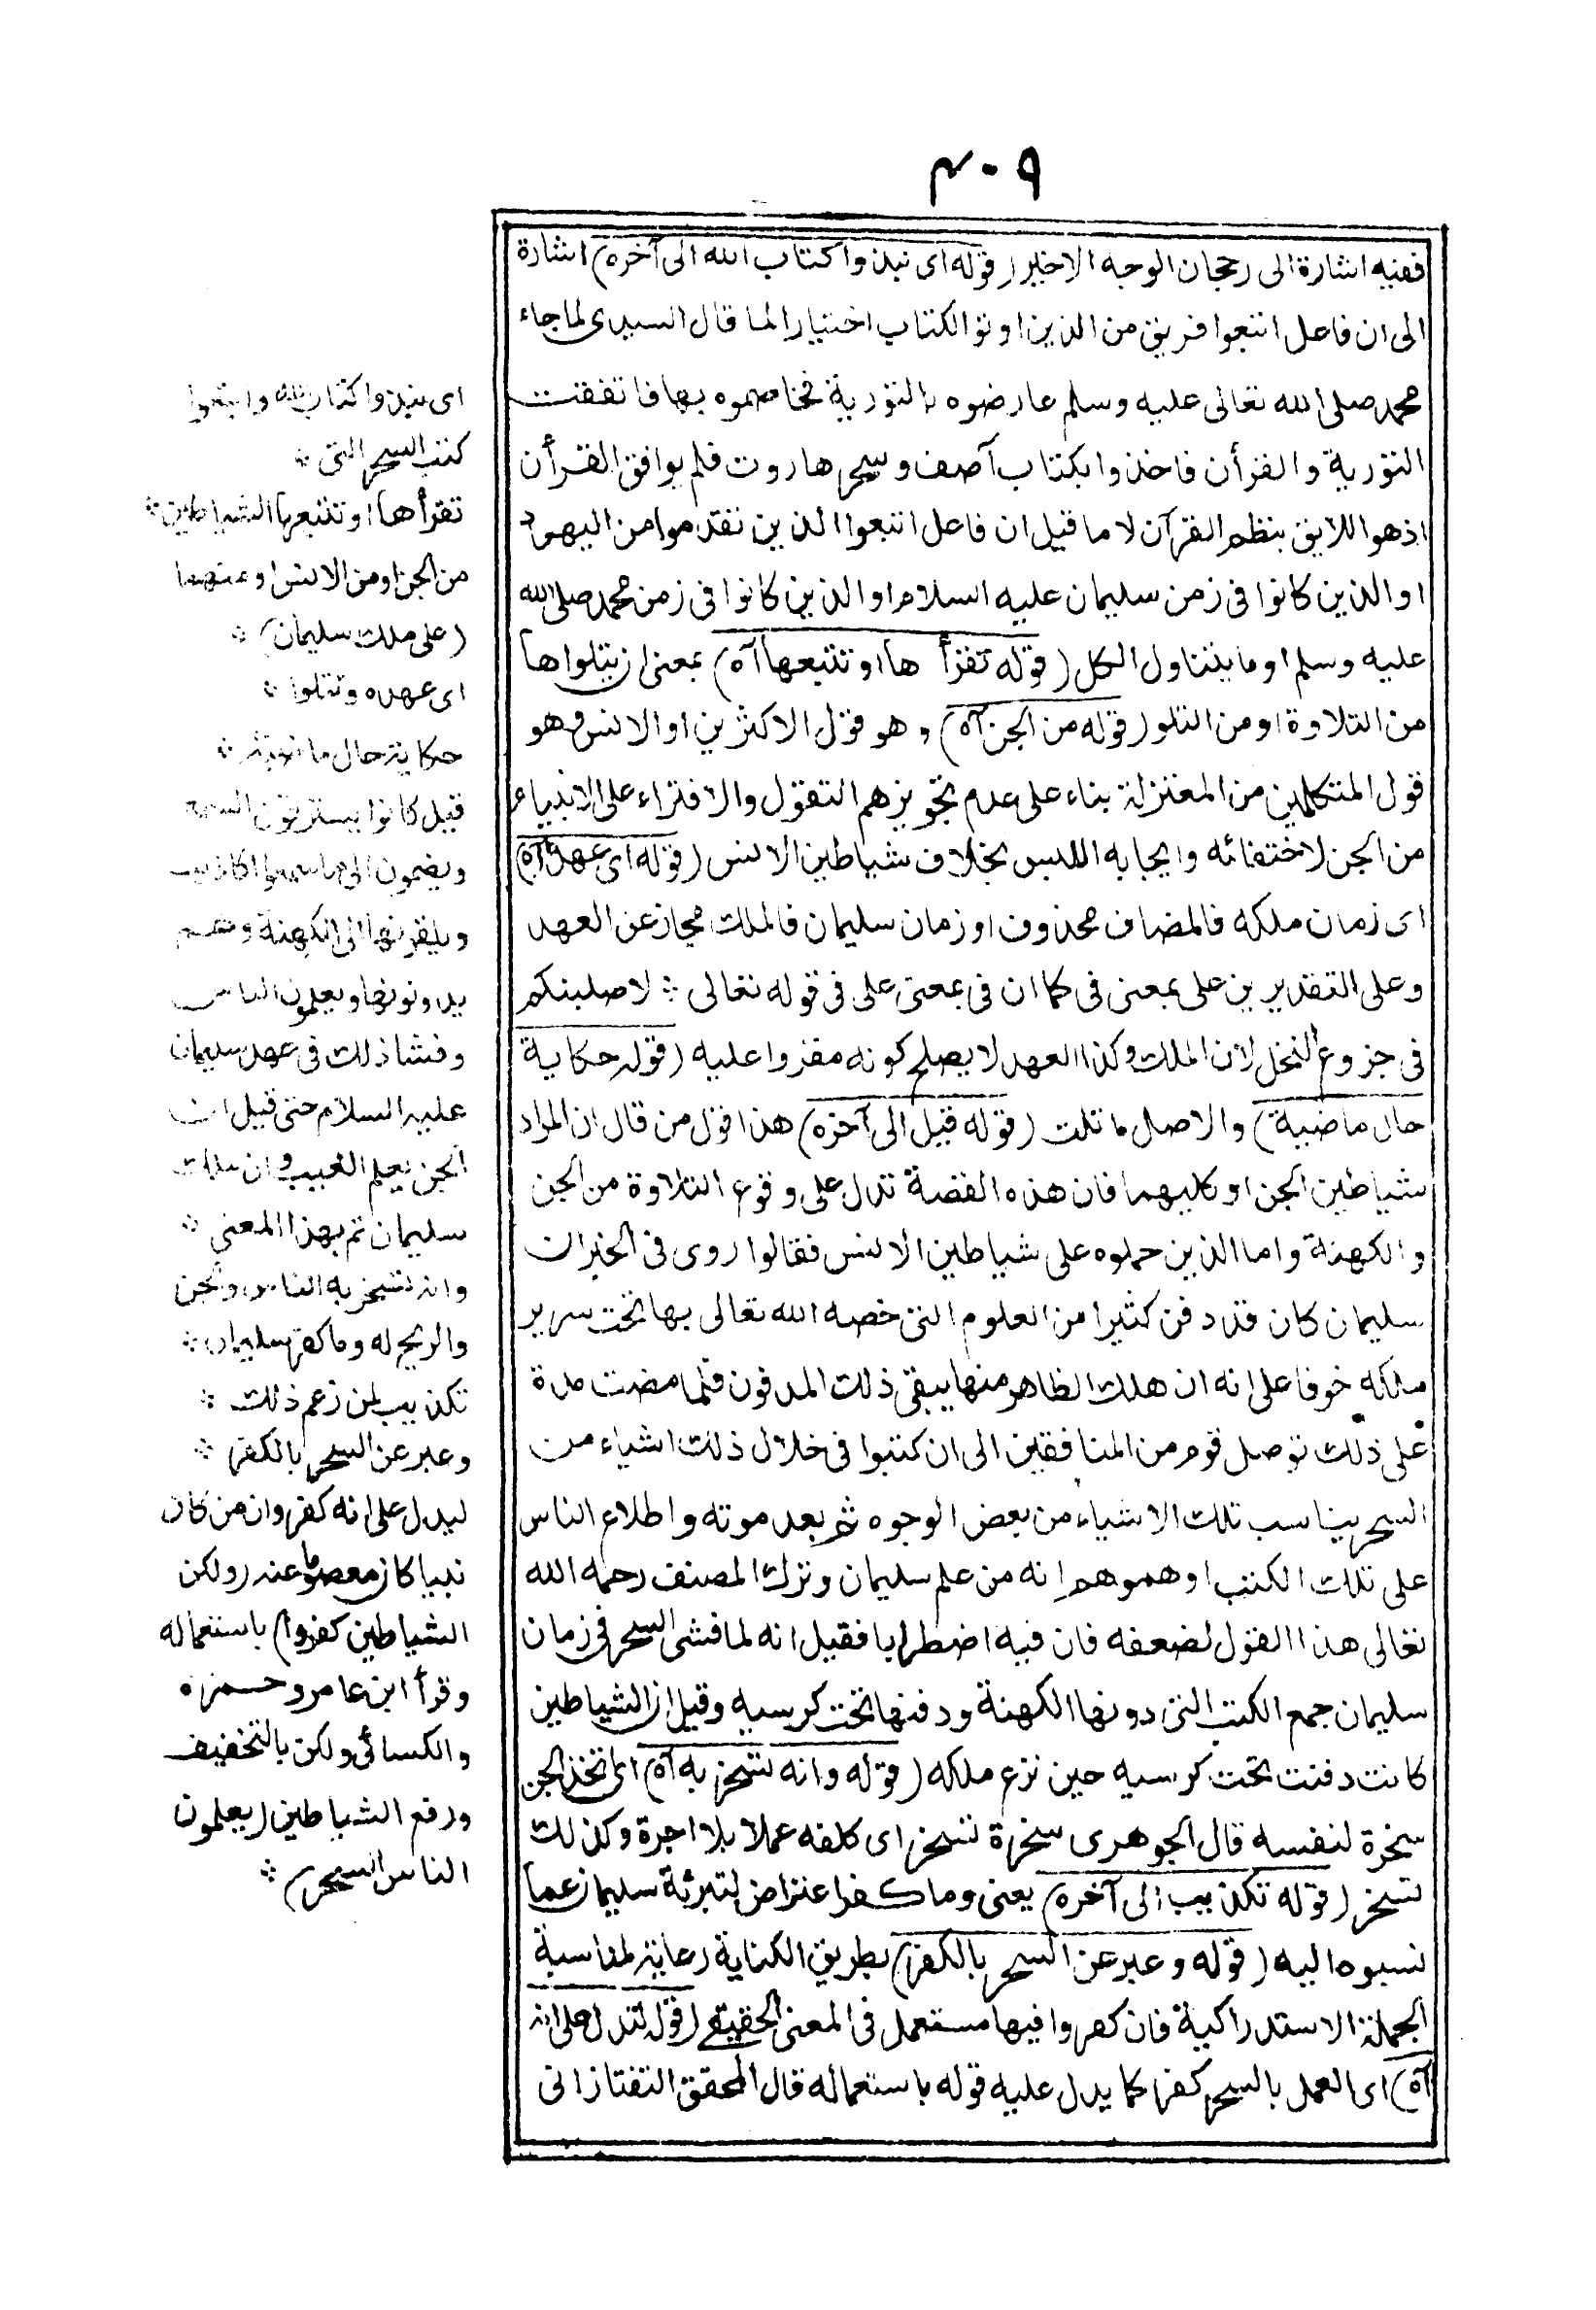 ٤٠٩
ففيه اشارة الى رجحان الوجه الاخير (قوله اى نبذوا كتاب الله الى آخره) اشارة
الى ان فاعل اتبعوا فريق من الذين اوتو الكتاب اختيارا لما قال السدى لما جاء
محمد صلى الله تعالى عليه وسلم عارضوه بالتورية فخاصموه بها فاتفقت
التورية والقرأن فاخذوا بكتاب آصف وسحر هاروت فلم يوافق القرأن
اذ هو اللايق بنظم القرآن لا ما قيل ان فاعل اتبعوا الذين تقدموا من اليهود
او الذين كانوا فى زمن سليمان عليه السلام او الذين كانوا فى زمن محمد صلى الله
عليه وسلم او ما يتناول الكل (قوله تقرأها او تتبعها آه) بمعنى ان يتلواها
من التلاوة او من التلو (قوله من الجن آه) وهو قول الاكثرين او الانس وهو
قول المتكلمين من المعتزلة بناء على عدم تجويزهم التقول والافتراء على الانبياء
من الجن لاختفائه وايجابه اللبس بخلاف شياطين الانس (قوله اى عهده آه)
اى زمان ملكه فالمضاف محذوف او زمان سليمان فالملك مجاز عن العهد
وعلى التقديرين على بمعنى فى كما ان فى بمعنى على فى قوله تعالى ؞ لاصلبنكم
فى جزوع النخل لان الملك وكذا العهد لا يصلح كونه مقروا عليه (قوله حكاية
حال ماضية) والاصل ما تلت (قوله قيل الى آخره) هذا قول من قال ان المراد
شياطين الجن او كليهما فان هذه القصة تدل على وقوع التلاوة من الجن
والكهنة واما الذين حملوه على شياطين الانس فقالوا روى فى الخبر ان
سليمان كان قد دفن كثيرا من العلوم التى خصه الله تعالى بها تحت سرير
ملكه خوفا على انه ان هلك الظاهر منها يبقى ذلك المدفون فلما مضت مدة
على ذلك توصل قوم من المنافقين الى ان كتبوا فى خلال ذلك اشياء من
السحر يناسب تلك الاشياء من بعض الوجوه ثم بعد موته واطلاع الناس
على تلك الكتب اوهموهم انه من علم سليمان وترك المصنف رحمه الله
تعالى هذا القول لضعفه فان فيه اضطرابا فقيل انه لما فشى السحر فى زمان
سليمان جمع الكتب التى دونها الكهنة ودفنها تحت كرسيه وقيل ان الشياطين
كانت دفنت تحت كرسيه حين نزع ملكه (قوله وانه تسخر به آه) اى تخذ الجن
سخرة لنفسه قال الجوهرى سخرة تسخر اى كلفه عملا بلا اجرة وكذلك
تسخر (قوله تكذيب الى آخره) يعنى وما كفر اعتراض لتبرئة سليمان عما
نسبوه اليه (قوله وعبر عن السحر بالكفر) بطريق الكناية رعاية لمناسبة
الجملة الاستدراكية فان كفروا فيها مستعمل فى المعنى الحقيقى (قوله لتدل على انه
آه) اى العمل بالسحر كفر كما يدل عليه قوله باستعماله قال المحقق التفتازانى
اى نبذوا كتاب الله واتبعوا
كتب السحر التى ؞
تقرأها او تتبعها الشياطين ؞
من الجن او من الانس او منهما
(على ملك سليمان) ؞
اى عهده وتتلوا ؞
حكاية حال ماضية ؞
قيل كانوا يسترقون السمع
ويضمون الى ما سمعوا اكاذيب
ويلقونها الى الكهنة وهم
يدونونها ويعلمون الناس
وفشا ذلك فى عهد سليمان
عليه السلام حتى قيل ان
الجن يعلم الغيب وان ملك
سليمان تم بهذا المعنى ؞
وانه تسخر به الناس والجن
والريح له وما كفر سليمان ؞
تكذيب لمن زعم ذلك ؞
وعبر عن السحر بالكفر ؞
ليدل على انه كفر وان من كان
نبيا كان معصوما عنه (ولكن
الشياطين كفروا) باستعماله
وقرأ ابن عامر وحمزه
والكسائى ولكن بالتخفيف
ورفع الشياطين (يعلمون
الناس السحر) ؞